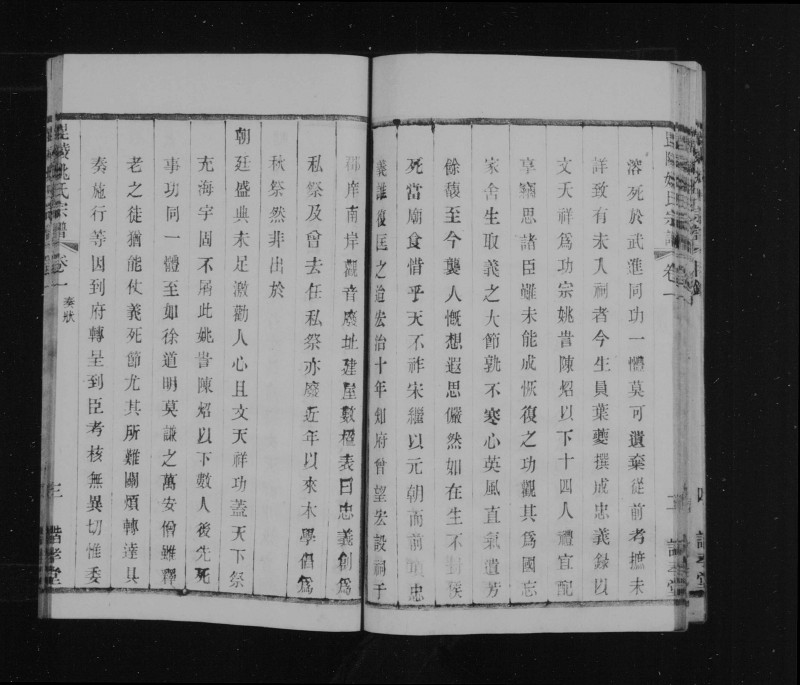 溶死於武進同功一體莫可遺棄從前考摭未
詳致有未入祠者今生員葉夔撰成忠義錄以
文天祥爲功宗姚訔陳炤以下十四人禮宜配
享竊思諸臣雖未能成恢復之功觀其爲國忘
家舍生取義之大節孰不寒心英風直氣遺芳
餘馥至今襲人慨想遐思儼然如在生不封侯
死當廟食惜乎天不祚宋繼以元朝而前項忠
義誰復匡之迨宏治十年知府曾望宏設祠于
郡岸南岸觀音廢址建屋數楹表曰忠義創爲
私祭及曾去任私祭亦廢近年以來本學倡爲
秋祭然非出於
朝廷盛典未足激勸人心且文天祥功蓋天下祭
充海宇固不屑此姚訔陳炤以下數人後先死
事功同一體至如徐道明莫謙之萬安僧雖釋
老之徒猶能仗義死節尤其所難關煩轉達具
奏施行等因到府轉呈到臣考核無異切惟委
毘陵姚氏宗譜
卷一
奏狀
三
諧孝堂